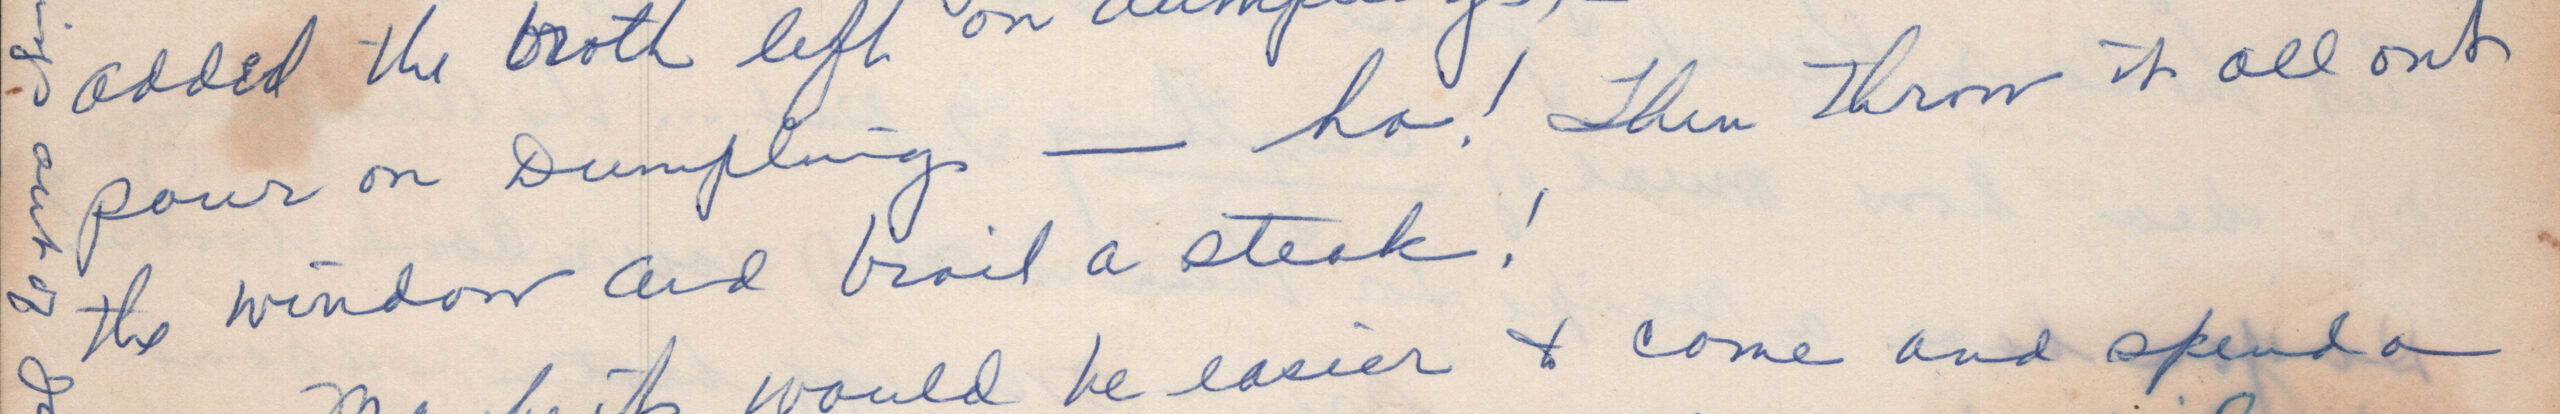 on dumplings, –
added the broth left
pour on Dumplings — ha! Then Throw it all out
the window and broil a steak!
Maybe it would be easier to come and spend a